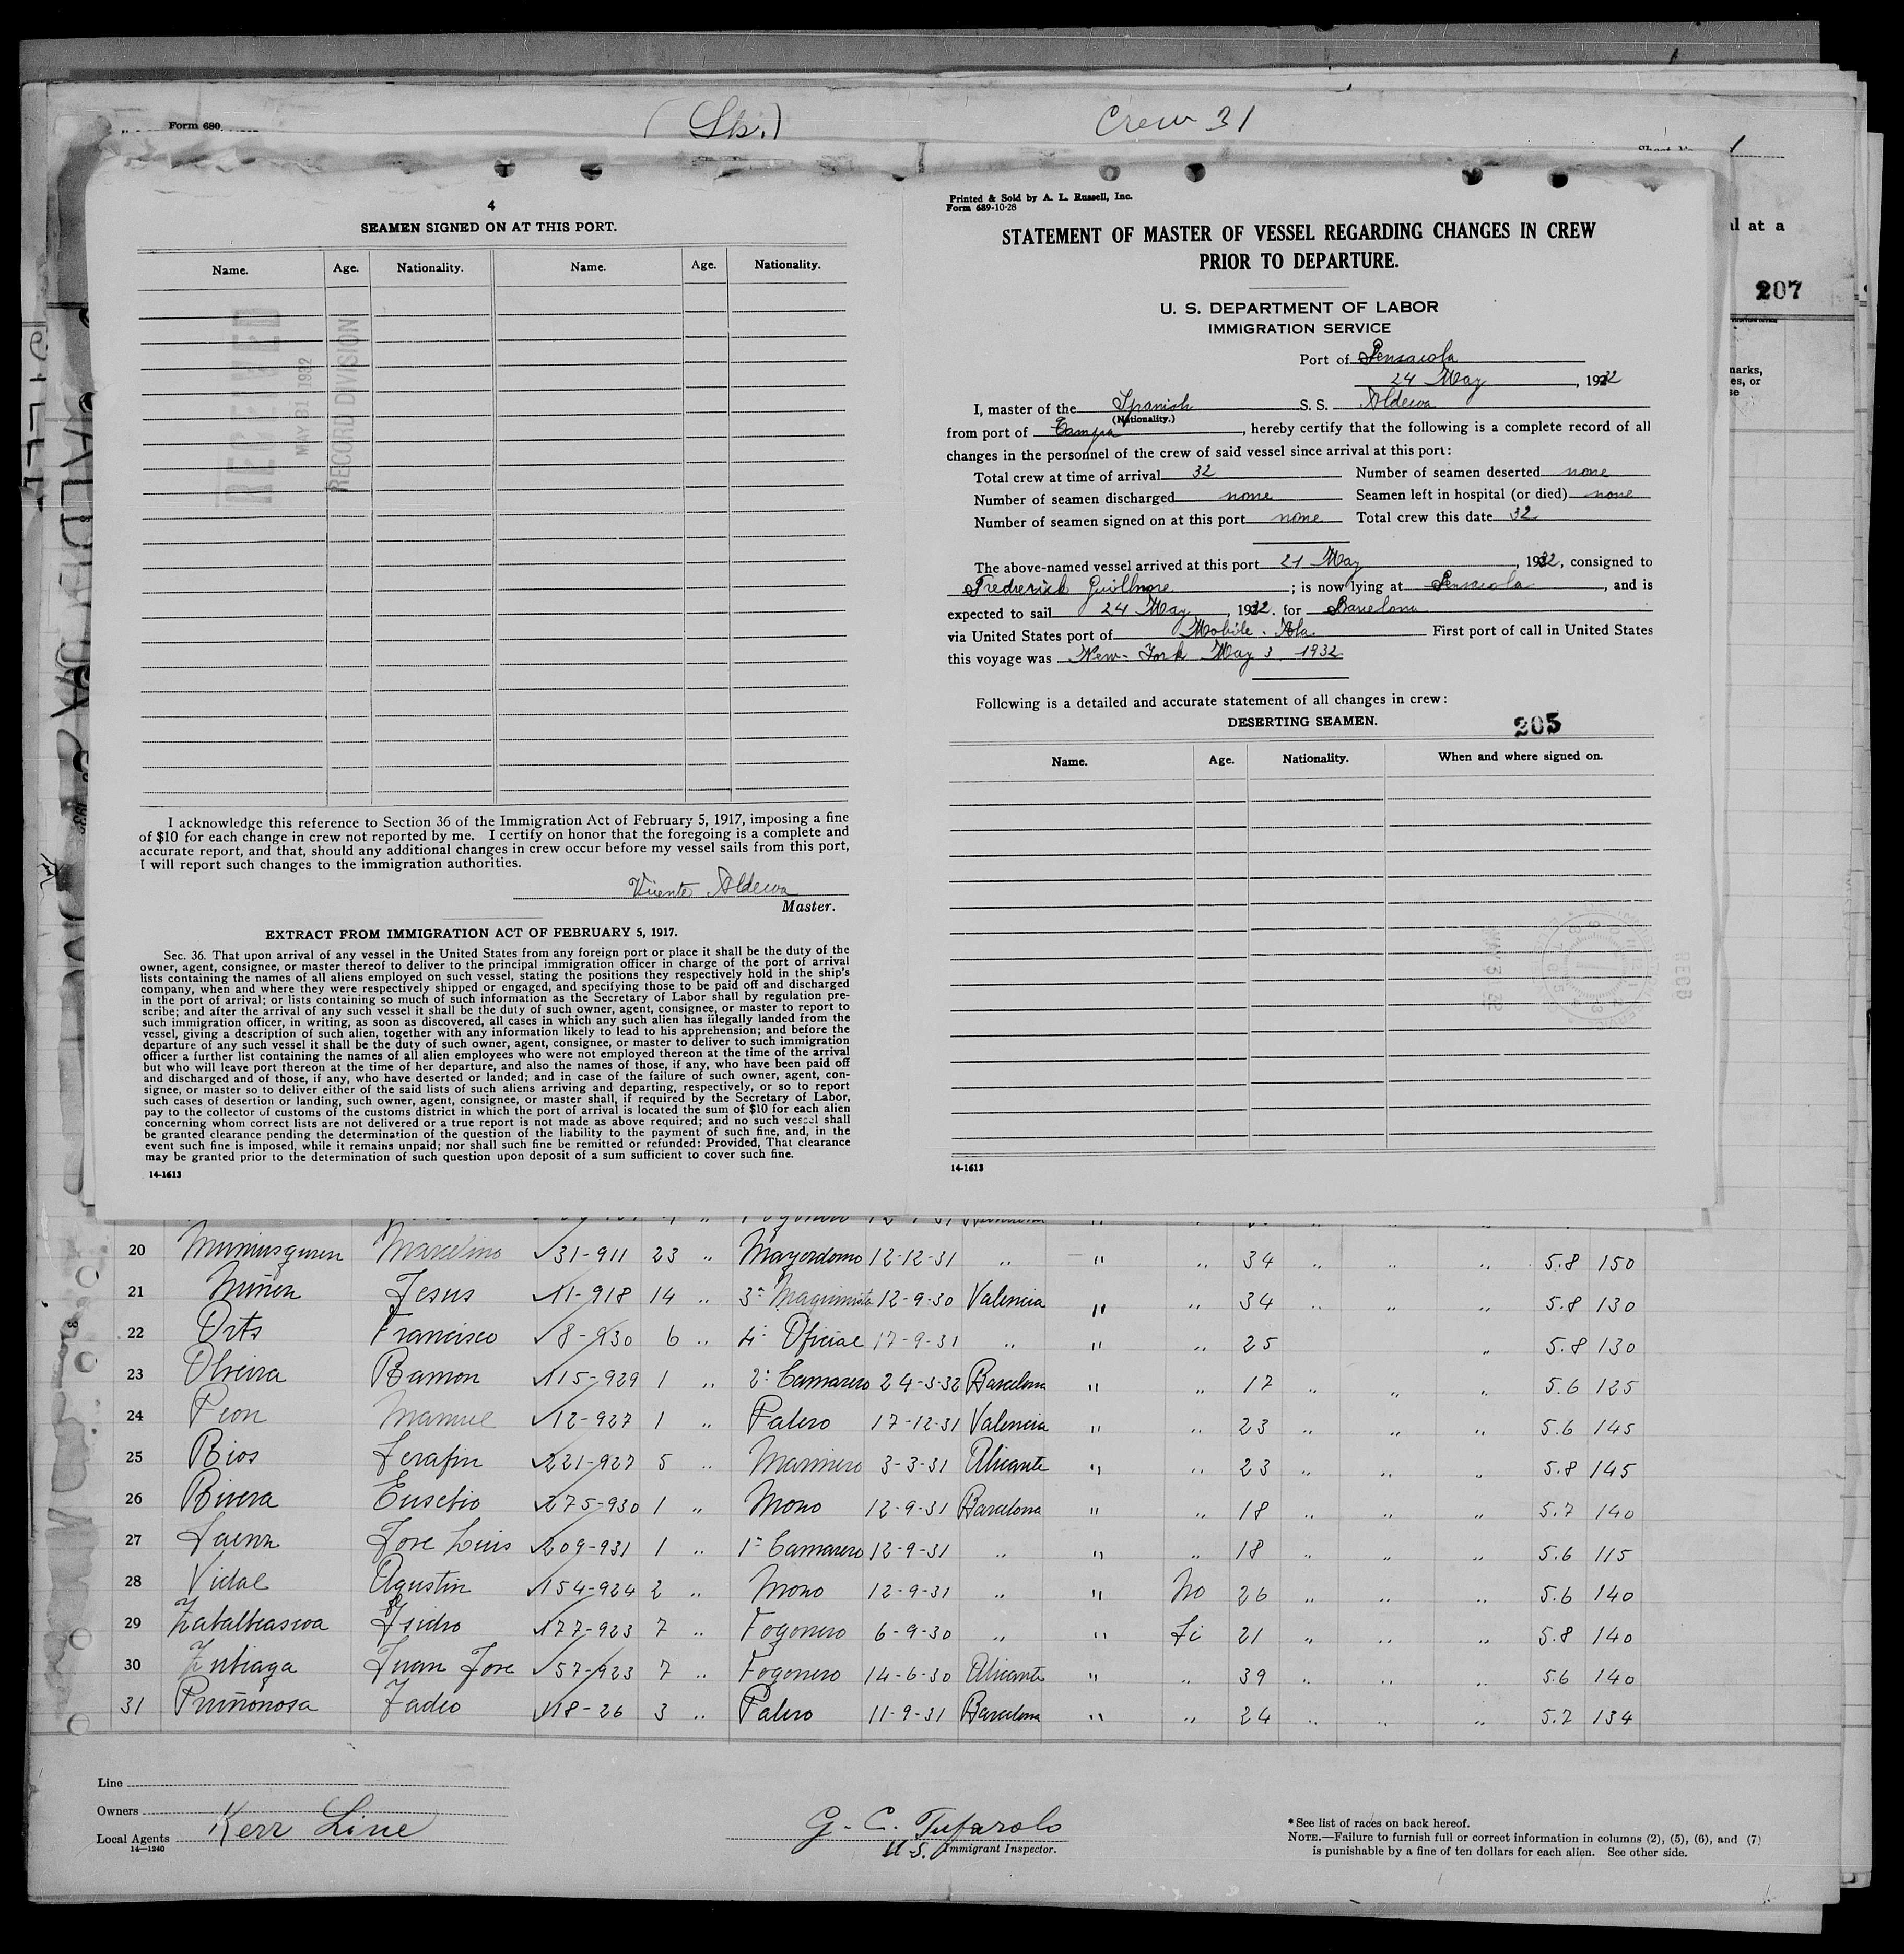 Form 680
(Sp.)
Crew 31
207
al at a
4
SEAMEN SIGNED ON AT THIS PORT.
Name. Age. Nationality. Name. Age. Nationality.
RECEIVED
MAY 31 1932
RECORD DIVISION
I acknowledge this reference to Section 36 of the Immigration Act of February 5, 1917, imposing a fine
of $10 for each change in crew not reported by me. I certify on honor that the foregoing is a complete and
accurate report, and that, should any additional changes in crew occur before my vessel sails from this port,
I will report such changes to the immigration authorities.
Vicente Aldecoa
Master.
EXTRACT FROM IMMIGRATION ACT OF FEBRUARY 5, 1917.
Sec. 36. That upon arrival of any vessel in the United States from any foreign port or place it shall be the duty of the
owner, agent, consignee, or master thereof to deliver to the principal immigration officer in charge of the port of arrival
lists containing the names of all aliens employed on such vessel, stating the positions they respectively hold in the ship's
company, when and where they were respectively shipped or engaged, and specifying those to be paid off and discharged
in the port of arrival; or lists containing so much of such information as the Secretary of Labor shall by regulation pre-
scribe; and after the arrival of any such vessel it shall be the duty of such owner, agent, consignee, or master to report to
such immigration officer, in writing, as soon as discovered, all cases in which any such alien has illegally landed from the
vessel, giving a description of such alien, together with any information likely to lead to his apprehension; and before the
departure of any such vessel it shall be the duty of such owner, agent, consignee, or master to deliver to such immigration
officer a further list containing the names of all alien employees who were not employed thereon at the time of the arrival
but who will leave port thereon at the time of her departure, and also the names of those, if any, who have been paid off
and discharged and of those, if any, who have deserted or landed; and in case of the failure of such owner, agent, con-
signee, or master so to deliver either of the said lists of such aliens arriving and departing, respectively, or so to report
such cases of desertion or landing, such owner, agent, consignee, or master shall, if required by the Secretary of Labor,
pay to the collector of customs of the customs district in which the port of arrival is located the sum of $10 for each alien
concerning whom correct lists are not delivered or a true report is not made as above required; and no such vessel shall
be granted clearance pending the determination of the question of the liability to the payment of such fine, and, in the
event such fine is imposed, while it remains unpaid; nor shall such fine be remitted or refunded: Provided, That clearance
may be granted prior to the determination of such question upon deposit of a sum sufficient to cover such fine.
14-1613
Printed & Sold by A. L. Russell, Inc.
Form 689-10-28
STATEMENT OF MASTER OF VESSEL REGARDING CHANGES IN CREW
PRIOR TO DEPARTURE.
U. S. DEPARTMENT OF LABOR
IMMIGRATION SERVICE
Port of Pensacola
24 May, 1932
I, master of the Spanish S. S. Aldecoa
(Nationality.)
from port of Tampa, hereby certify that the following is a complete record of all
changes in the personnel of the crew of said vessel since arrival at this port:
Total crew at time of arrival 32 Number of seamen deserted none
Number of seamen discharged none Seamen left in hospital (or died) none
Number of seamen signed on at this port none Total crew this date 32
The above-named vessel arrived at this port 21 May, 1932, consigned to
Frederick Guillmore; is now lying at Pensacola, and is
expected to sail 24 May, 1932. for Barcelona
via United States port of Mobile. Ala. First port of call in United States
this voyage was New-York May 3 1932
Following is a detailed and accurate statement of all changes in crew:
DESERTING SEAMEN. 205
Name. Age. Nationality. When and where signed on.
14-1613
20 Marcelino 31-911 23 " Mayordomo 12-12-31 " " " 34 " " " 5.8 150
21 Jesus 11-918 14 " 3º Maquinista 12-9-30 Valencia " " 34 " " " 5.8 130
22 Orts Francisco 8-930 6 " 4º Oficial 17-9-31 " " " 25 " 5.8 130
23 Olveira Ramon 115-929 1 " 2º Camarero 24-3-32 Barcelona " " 17 " " " 5.6 125
24 Peon Manuel 12-927 1 " Palero 17-12-31 Valencia " " 23 " " " 5.6 145
25 Rios Serafin 221-927 5 " Marinero 3-3-31 Alicante " " 23 " " " 5.8 145
26 Rivera Eusebio 275-930 1 " Mozo 12-9-31 Barcelona " " 18 " " " 5.7 140
27 Saenz Jose Luis 209-931 1 " 1º Camarero 12-9-31 " " " 18 " " " 5.6 115
28 Vidal Agustin 154-924 2 " Mozo 12-9-31 " " No 26 " " " 5.6 140
29 Isidro 177-923 7 " Fogonero 6-9-30 " " Si 21 " " " 5.8 140
30 Zubiaga Juan Jose 57-923 7 " Fogonero 14-6-30 Alicante " " 39 " " " 5.6 140
31 Puiñonosa Tadeo 118-26 3 " Palero 11-9-31 Barcelona " " 24 " " " 5.7 134
Line
Owners
Local Agents Kerr Line
14-1240
G. C. Tufarolo
U. S. Immigrant Inspector.
* See list of races on back hereof.
NOTE.—Failure to furnish full or correct information in columns (2), (5), (6), and (7)
is punishable by a fine of ten dollars for each alien. See other side.